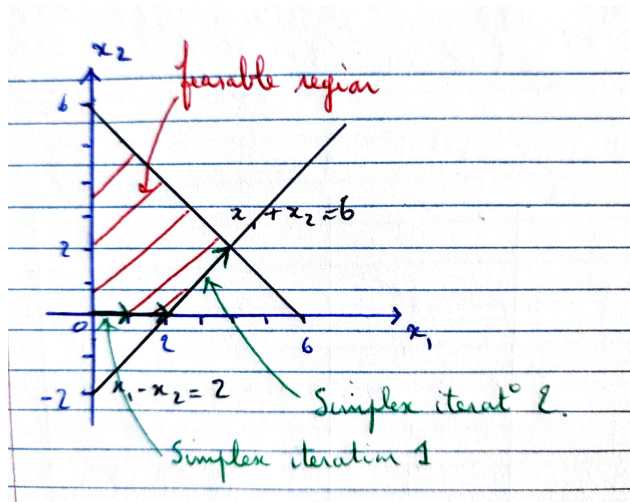 x₂
feasable region
6
x₁ + x₂ = 6
2
0
2
6
x₁
-2
x₁ - x₂ = 2
Simplex iterat° 2.
Simplex iteration 1